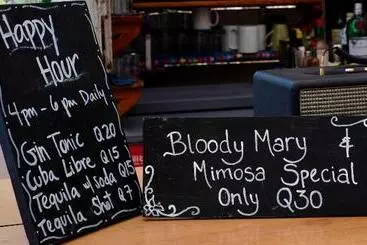 Happy
Hour
4pm - 6pm Daily
Gin Tonic Q20
Cuba Libre Q15
Tequila w/ soda Q15
Tequila Shot Q7
Bloody Mary &
Mimosa Special
Only Q30